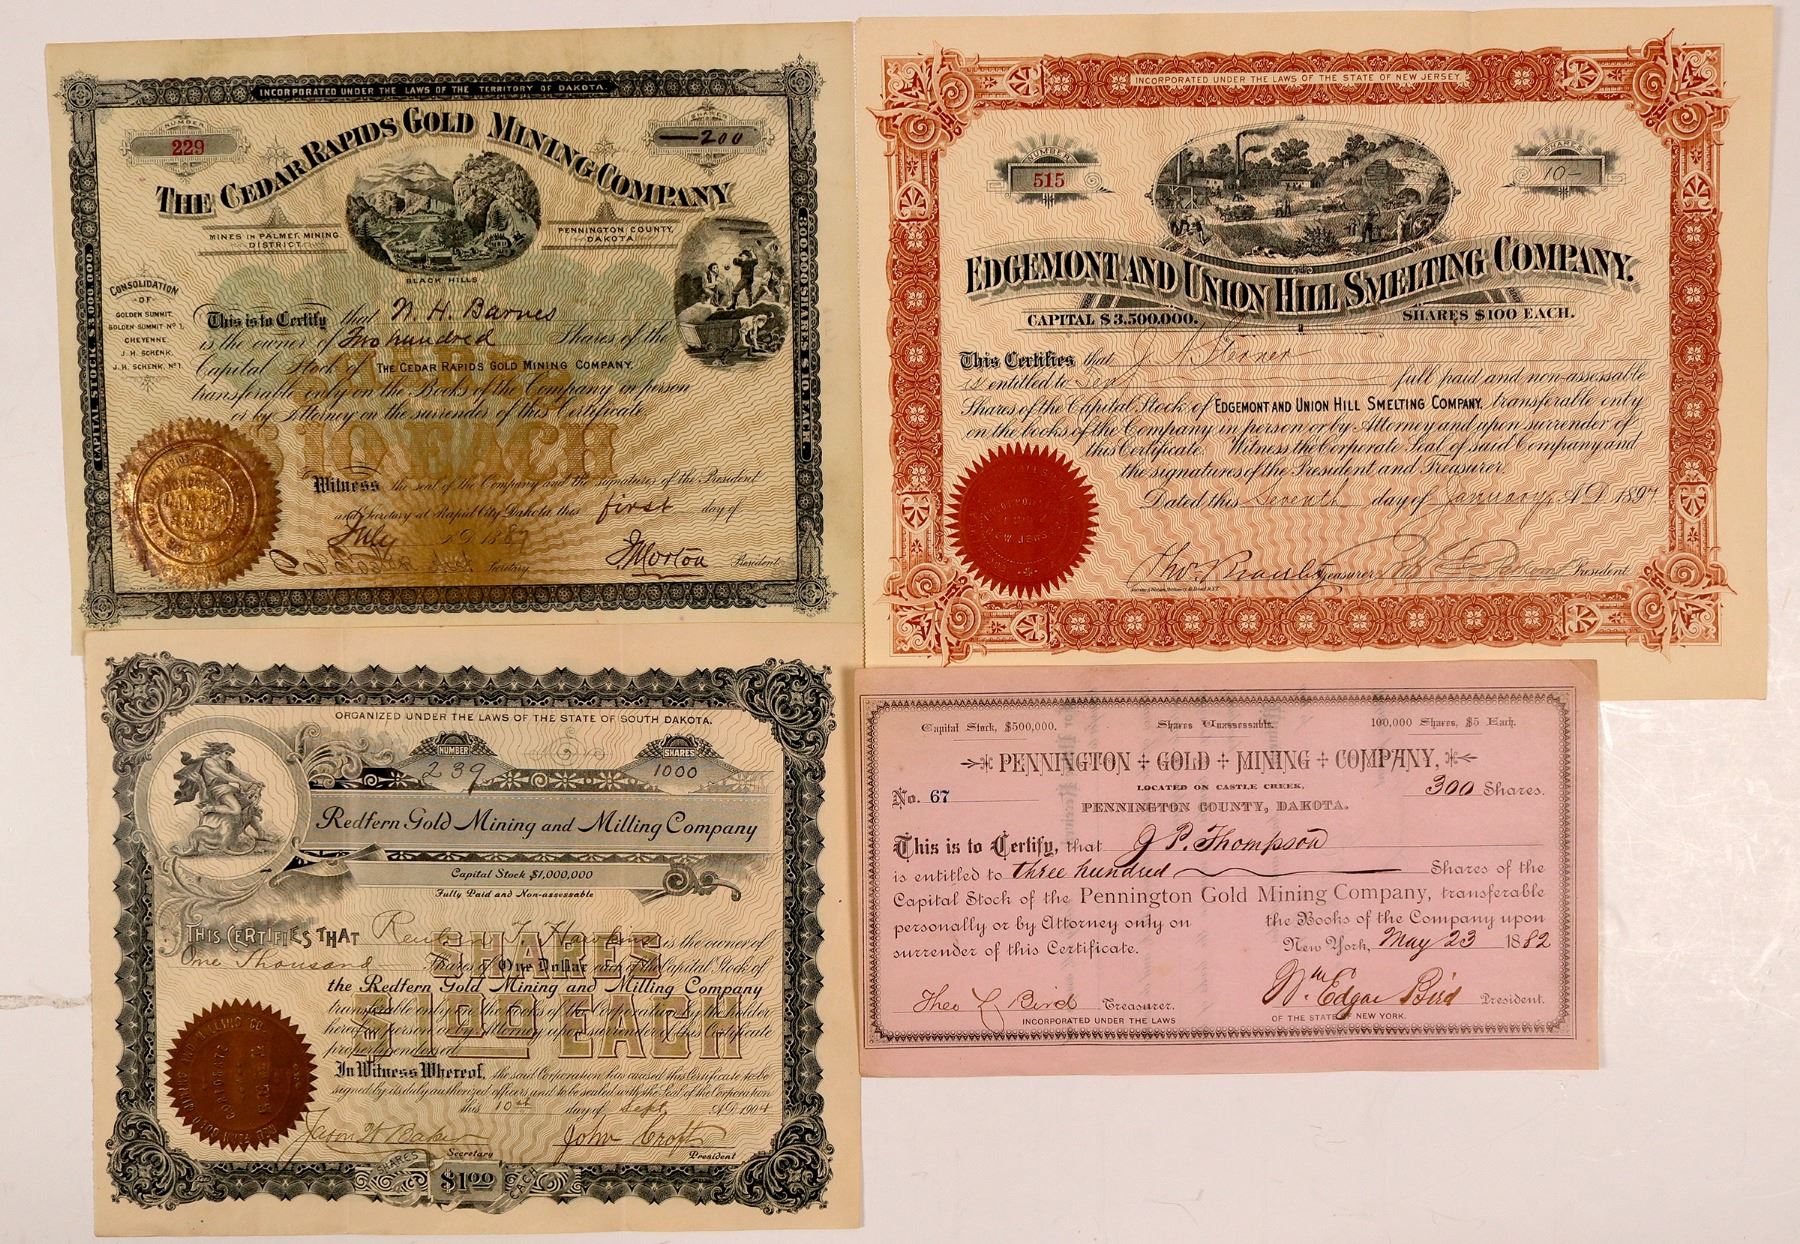 INCORPORATED UNDER THE LAWS OF THE TERRITORY OF DAKOTA.
NUMBER
229
SHARES
200
THE CEDAR RAPIDS GOLD MINING COMPANY
MINES IN PALMER MINING DISTRICT
PENNINGTON COUNTY, DAKOTA
BLACK HILLS
CAPITAL STOCK $3,000,000.
300,000 SHARES $10 EACH
CONSOLIDATION
OF
GOLDEN SUMMIT.
GOLDEN SUMMIT Nº 1,
CHEYENNE.
J. H. SCHENK.
J. H. SCHENK, Nº 1.
This is to Certify that N. H. Barnes
is the owner of Two hundred Shares of the
Capital Stock of THE CEDAR RAPIDS GOLD MINING COMPANY.
transferable only on the Books of the Company in person
or by Attorney on the surrender of this Certificate.
SHARES
$10 EACH
Witness the seal of the Company and the signatures of the President
and Secretary at Rapid City, Dakota this first day of
July A.D. 1887
Secretary.
J Morton President
INCORPORATED UNDER THE LAWS OF THE STATE OF NEW JERSEY.
NUMBER
515
SHARES
10
EDGEMONT AND UNION HILL SMELTING COMPANY.
CAPITAL $3,500,000.
SHARES $100 EACH.
This Certifies that J. A. Sterner
is entitled to Ten full paid and non-assessable
Shares of the Capital Stock of EDGEMONT AND UNION HILL SMELTING COMPANY, transferable only
on the books of the Company in person or by Attorney and upon surrender of
this Certificate. Witness the Corporate Seal of said Company and
the signatures of the President and Treasurer.
Dated this Seventh day of January, A.D. 1897
Treasurer
President
ORGANIZED UNDER THE LAWS OF THE STATE OF SOUTH DAKOTA.
NUMBER
239
SHARES
1000
Redfern Gold Mining and Milling Company
Capital Stock $1,000,000
Fully Paid and Non-assessable
THIS CERTIFIES THAT Reuben T. is the owner of
One Thousand Shares of One Dollar each of the Capital Stock of
the Redfern Gold Mining and Milling Company
transferable only on the books of the Corporation by the holder
hereof in person or by Attorney upon surrender of this Certificate
properly endorsed.
SHARES
$1.00 EACH
In Witness Whereof, the said Corporation has caused this Certificate to be
signed by its duly authorized officers and to be sealed with the Seal of the Corporation
this 10th day of Sept A.D. 1904
Jason W Baker
Secretary
John Croft
President
SHARES $1.00 EACH
Capital Stock, $500,000.
Shares Unassessable.
100,000 Shares, $5 Each.
PENNINGTON GOLD MINING COMPANY,
No. 67
LOCATED ON CASTLE CREEK,
300 Shares.
PENNINGTON COUNTY, DAKOTA.
This is to Certify, that J P. Thompson
is entitled to three hundred Shares of the
Capital Stock of the Pennington Gold Mining Company, transferable
personally or by Attorney only on the Books of the Company upon
surrender of this Certificate.
New York, May 23 1882
Theo L Bird Treasurer.
Wm Edgar Bird President.
INCORPORATED UNDER THE LAWS OF THE STATE OF NEW YORK.